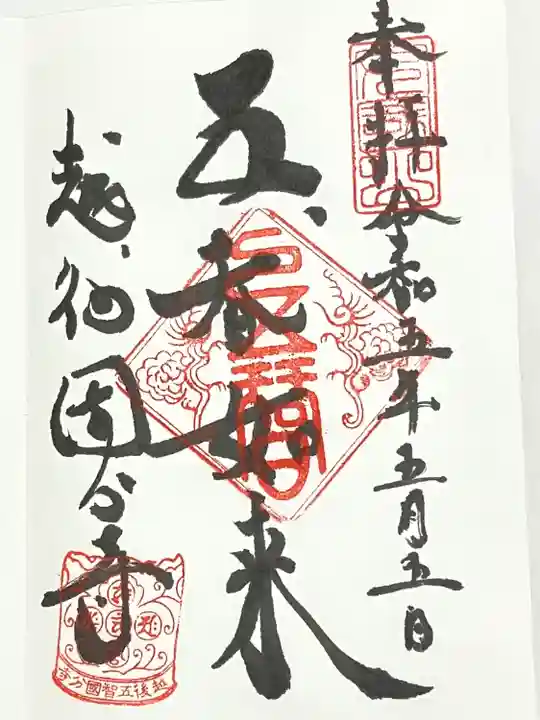 奉拝 令和五年五月五日
五智如来
越後国分寺
越後五智國分寺